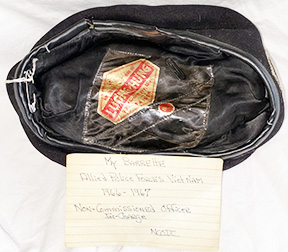 LUCKY CHUNG
My Barrette
Allied Police Forces Vietnam
1966 - 1967
Non-Commissioned Officer
In-Charge